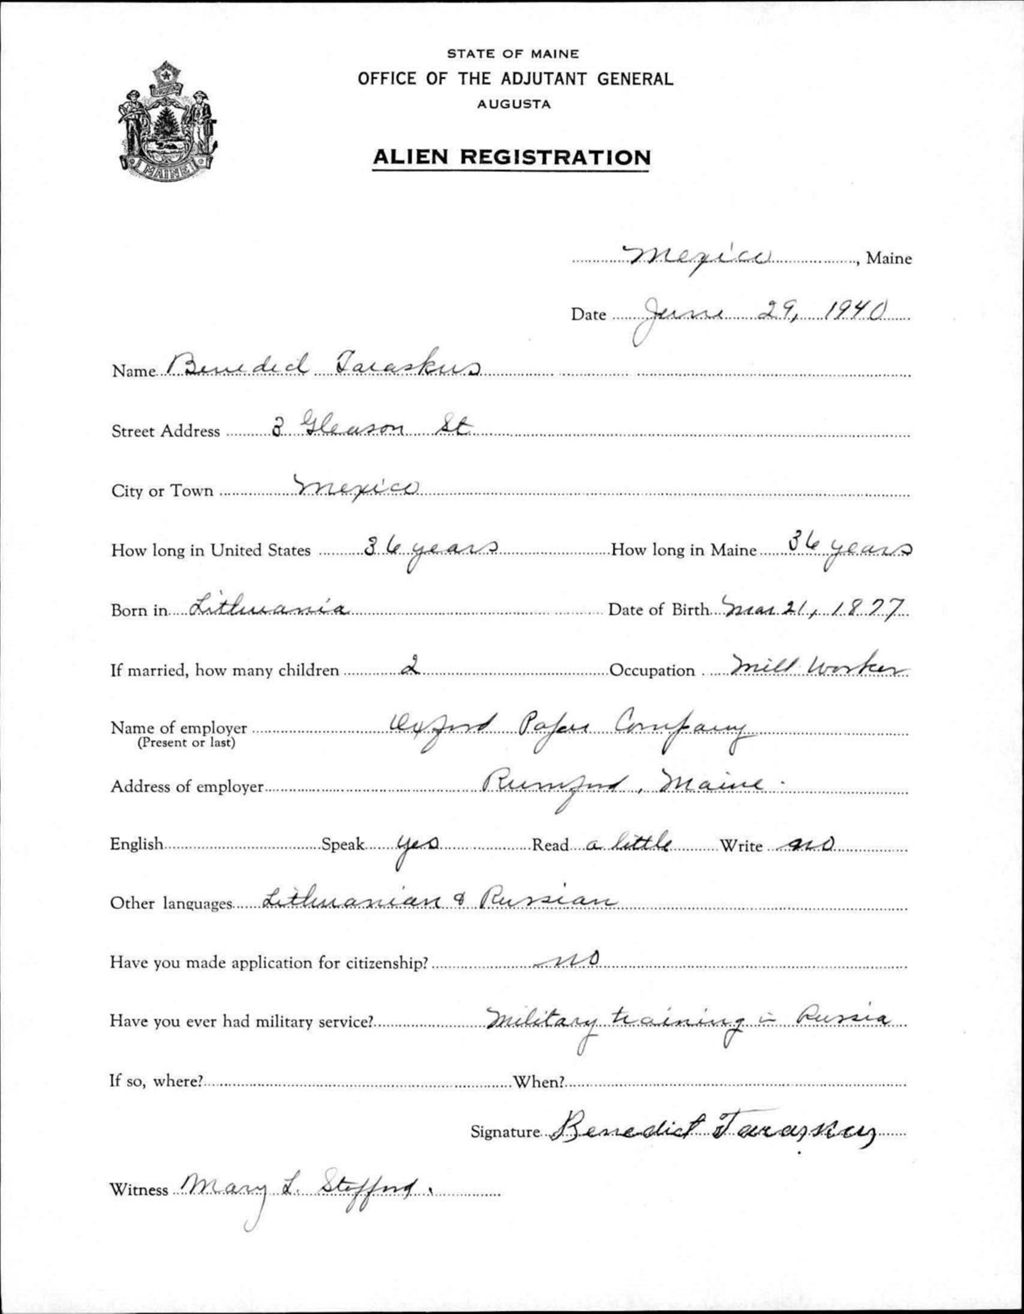 STATE OF MAINE
OFFICE OF THE ADJUTANT GENERAL
AUGUSTA
ALIEN REGISTRATION
MAINE
Mexico, Maine
Date June 29, 1940
Name Benedict Taraskus
Street Address 3 Gleason St
City or Town Mexico
How long in United States 36 years How long in Maine 36 years
Born in Lithuania Date of Birth Mar 21, 1877
If married, how many children 2 Occupation Mill Worker
Name of employer Oxford Paper Company
(Present or last)
Address of employer Rumford, Maine.
English Speak yes Read a little Write no
Other languages Lithuanian & Russian
Have you made application for citizenship? no
Have you ever had military service? Military training in Russia
If so, where? When?
Signature Benedict Taraskus
Witness Mary L. Stafford.